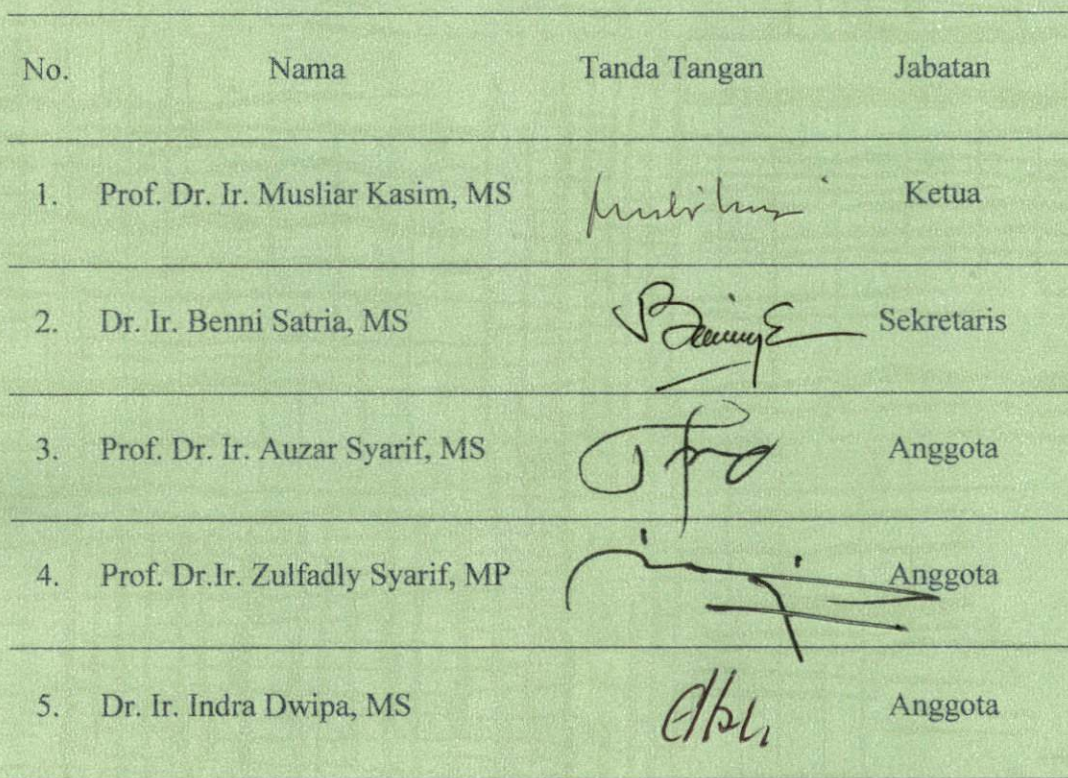 No. Nama Tanda Tangan Jabatan
1. Prof. Dr. Ir. Musliar Kasim, MS Ketua
2. Dr. Ir. Benni Satria, MS Sekretaris
3. Prof. Dr. Ir. Auzar Syarif, MS Anggota
4. Prof. Dr.Ir. Zulfadly Syarif, MP Anggota
5. Dr. Ir. Indra Dwipa, MS Anggota